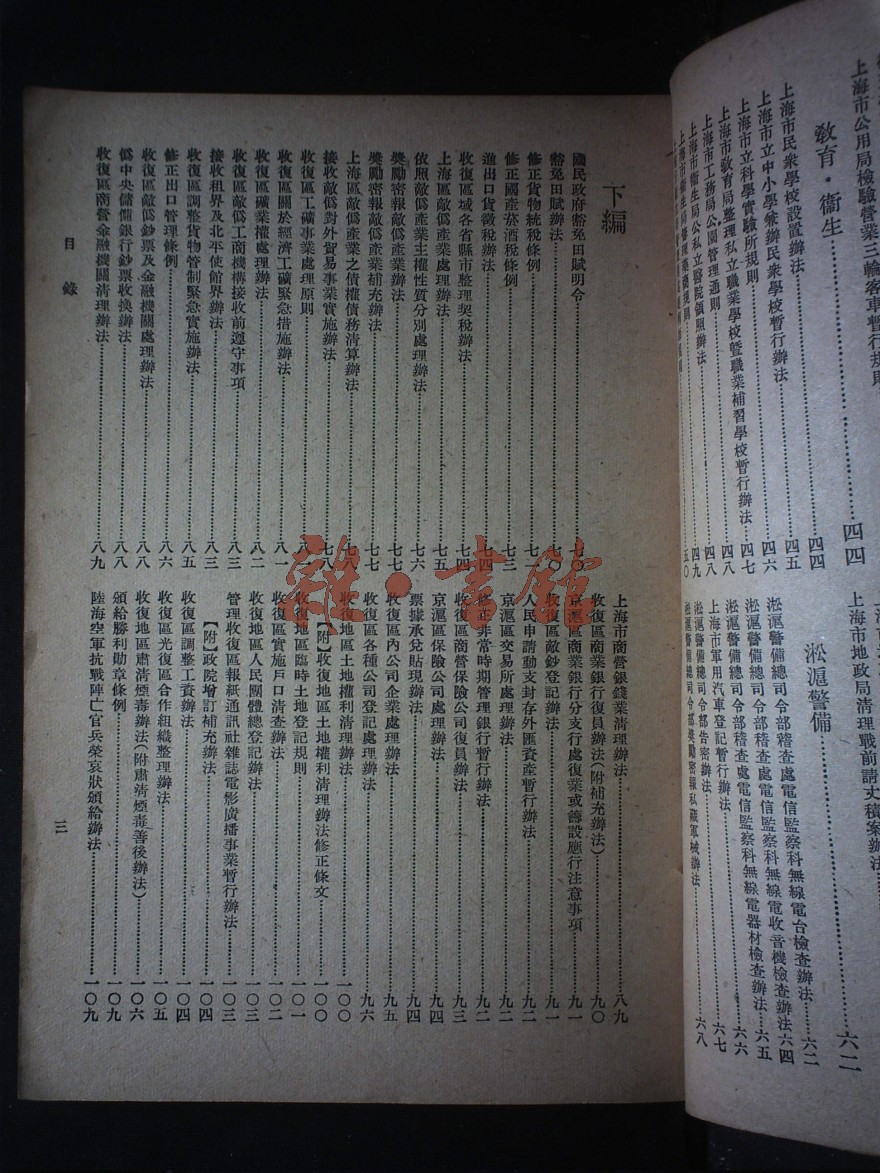 上海市公用局檢驗營業三輪客車暫行規則
教育・衞生……四四
上海市民衆學校設置辦法……四四
上海市立中小學兼辦民衆學校暫行辦法……四五
上海市立科學實驗所規則……四六
上海市教育局整理私立職業學校暨職業補習學校暫行辦法……四七
上海市工務局公園管理通則……四八
上海市衞生局公私立醫院領照辦法……四八
四九
五〇
上海市地政局清理戰前請丈積案辦法
淞滬警備……六二
淞滬警備總司令部稽查處電信監察科無線電台檢查辦法……六二
淞滬警備總司令部稽查處電信監察科無線電收音機檢查辦法……六四
淞滬警備總司令部稽查處電信監察科無線電器材檢查辦法……六五
上海市軍用汽車登記暫行辦法……六六
淞滬警備總司令部告密辦法……六七
淞滬警備總司令部獎勵密報私藏軍械辦法……六八
下編
國民政府豁免田賦明令……七〇
豁免田賦辦法……七〇
修正貨物統稅條例……七一
修正國產菸酒稅條例……七三
進出口貨徵稅辦法……七四
收復區域各省縣市整理契稅辦法……七四
上海區敵僞產業處理辦法……七五
依照敵僞產業主權性質分別處理辦法……七六
獎勵密報敵僞產業辦法……七七
獎勵密報敵僞產業補充辦法……七七
上海區敵僞產業之債權債務清算辦法……七八
接收敵僞對外貿易事業實施辦法……七八
收復區工礦事業處理原則……八〇
收復區關於經濟工礦緊急措施辦法……八一
收復區礦業權處理辦法……八二
收復區敵僞工商機構接收前遵守事項……八三
接收租界及北平使館界辦法……八三
收復區調整貨物管制緊急實施辦法……八五
修正出口管理條例……八六
收復區敵僞鈔票及金融機關處理辦法……八八
僞中央儲備銀行鈔票收換辦法……八八
收復區商營金融機關清理辦法……八九
上海市商營銀錢業清理辦法……八九
收復區商業銀行復員辦法(附補充辦法)……九〇
京滬區商業銀行分支行處復業或籌設應行注意事項……九一
收復區敵鈔登記辦法……九一
人民申請動支封存外匯資產暫行辦法……九二
京滬區交易所處理辦法……九二
修正非常時期管理銀行暫行辦法……九二
收復區商營保險公司復員辦法……九三
京滬區保險公司處理辦法……九四
票據承兌貼現辦法……九四
收復區內公司企業處理辦法……九五
收復區各種公司登記處理辦法……九六
收復地區土地權利清理辦法……一〇〇
【附】收復地區土地權利清理辦法修正條文……一〇〇
收復地區臨時土地登記規則……一〇一
收復區實施戶口清查辦法……一〇二
收復地區人民團體總登記辦法……一〇三
管理收復區報紙通訊社雜誌電影廣播事業暫行辦法……一〇三
【附】政院增訂補充辦法……一〇四
收復區調整工資辦法……一〇四
收復區光復區合作組織整理辦法……一〇五
收復地區肅清煙毒辦法(附肅清煙毒善後辦法)……一〇六
頒給勝利勛章條例……一〇九
陸海空軍抗戰陣亡官兵榮哀狀頒給辦法……一〇九
目錄
三
雜・書館